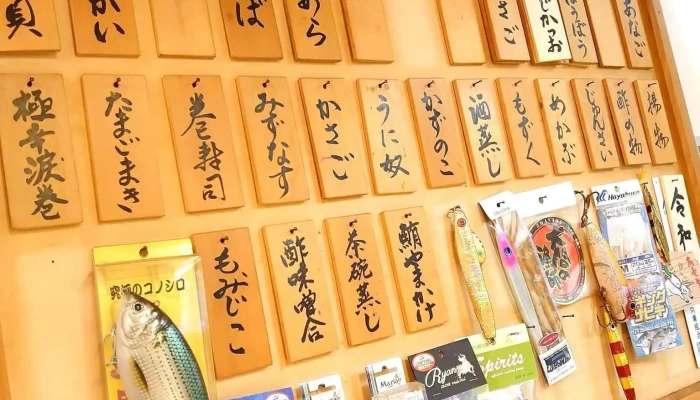 貝
かい
ば
あら
さご
じかつお
ほうぼう
あなご
極辛涙巻
たまごまき
巻寿司
みずなす
かさご
うに奴
かずのこ
酒蒸し
もずく
めかぶ
じゅんさい
酢の物
揚物
もみじこ
酢味噌合
茶碗蒸し
鮪やまかけ
究極のコノシロ
Hayabusa
令和
Ryan
Spirits